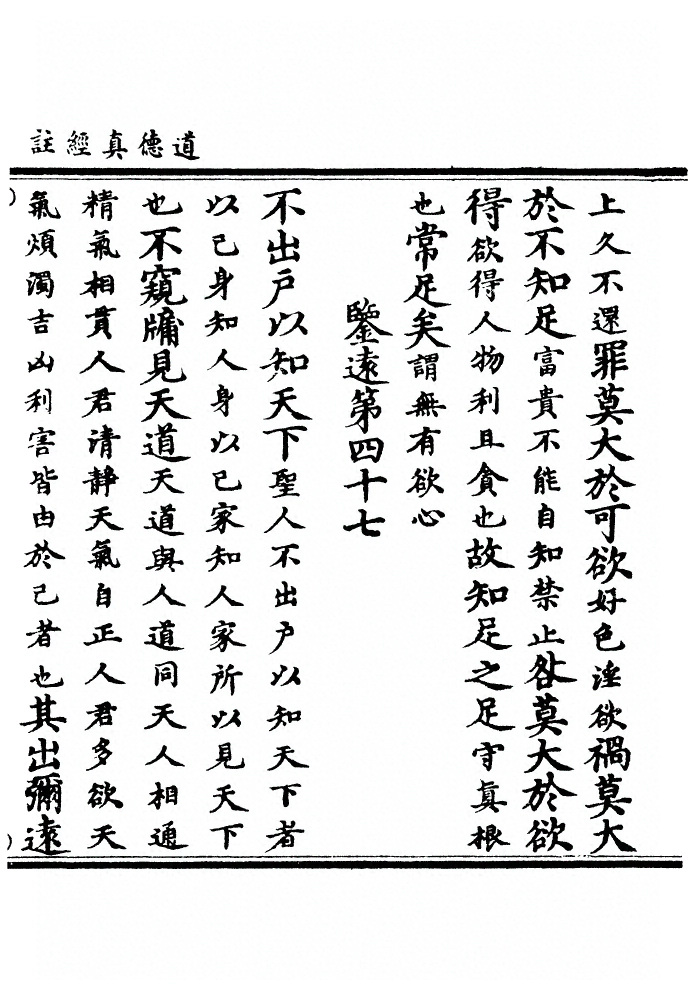 道德真經註
上久不還罪莫大於可欲好色淫欲禍莫大
於不知足富貴不能自知禁止咎莫大於欲
得欲得人物利且貪也故知足之足守真根
也常足矣謂無有欲心
鑒遠第四十七
不出戶以知天下聖人不出戶以知天下者
以己身知人身以己家知人家所以見天下
也不窺牖見天道天道與人道同天人相通
精氣相貫人君清靜天氣自正人君多欲天
氣煩濁吉凶利害皆由於己者也其出彌遠